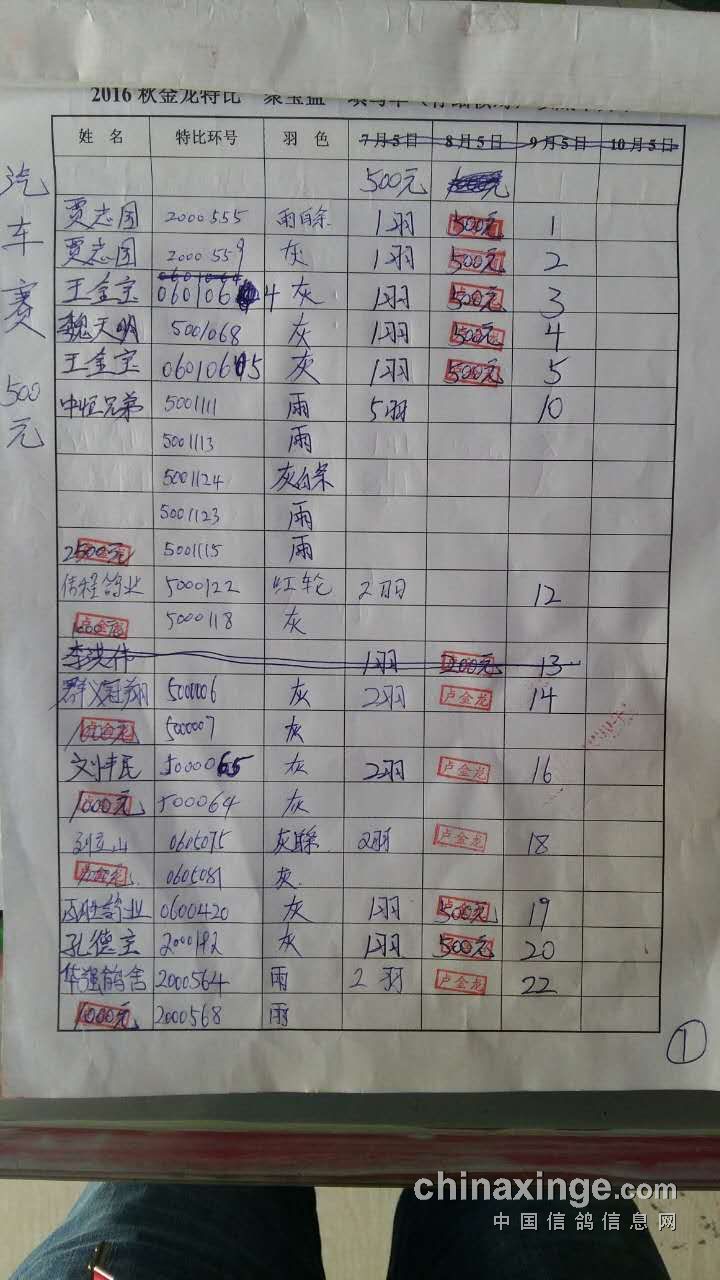 2016秋金龙特比
姓 名 特比环号 羽 色 7月5日 8月5日 9月5日 10月5日
汽车赛 500元
500元
贾志国 2000555 雨白条 1羽 500元 1
贾志国 2000559 灰 1羽 500元 2
王金宝 060106 4 灰 1羽 500元 3
魏天明 5001068 灰 1羽 500元 4
王金宝 灰 1羽 500元 5
中恒兄弟 5001111 雨 5羽 10
5001113 雨
5001124 灰白条
5001123 雨
2500元 5001115 雨
伟程鸽业 5000122 红轮 2羽 12
1000元 5000118 灰
李洪伟 1羽 13
群义冠翔 500006 灰 2羽 卢金龙 14
1000元 500007 灰
刘丰民 5000065 灰 2羽 卢金龙 16
1000元 500064 灰
刘立山 0605075 2羽 卢金龙 18
卢金龙 0605081 灰
鸽业 0600420 灰 1羽 500元 19
孔德宝 2000142 灰 1羽 500元 20
华强鸽舍 2000564 雨 2羽 卢金龙 22
1000元 2000568 雨
1
chinaxinge.com
中国信鸽信息网